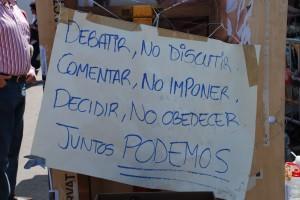 DEBATIR, NO DISCUTIR.
COMENTAR, NO IMPONER.
DECIDIR, NO OBEDECER
JUNTOS PODEMOS